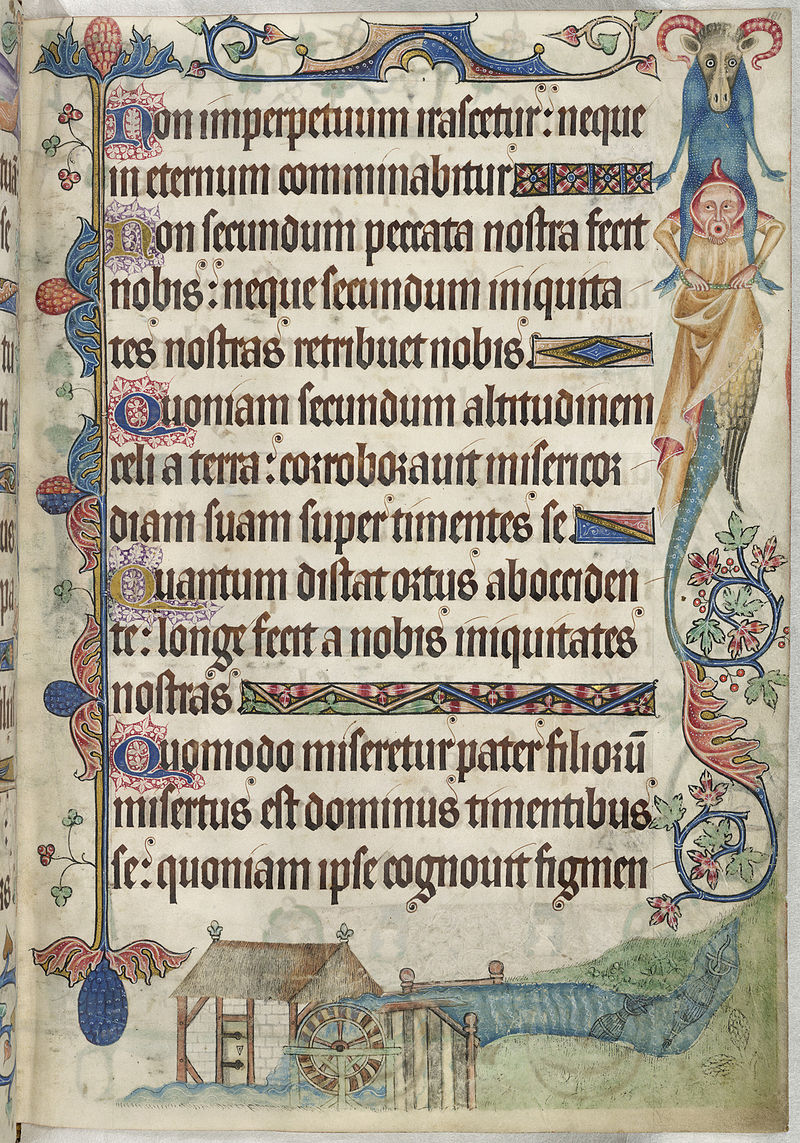 Non imperpetuum irascetur: neque
in eternum comminabitur
Non secundum peccata nostra fecit
nobis: neque secundum iniquita
tes nostras retribuet nobis.
Quoniam secundum altitudinem
celi a terra: corroborauit misericor
diam suam super timentes se.
Quantum distat ortus abocciden
te: longe fecit a nobis iniquitates
nostras
Quomodo miseretur pater filiorū
misertus est dominus timentibus
se: quoniam ipse cognouit figmen